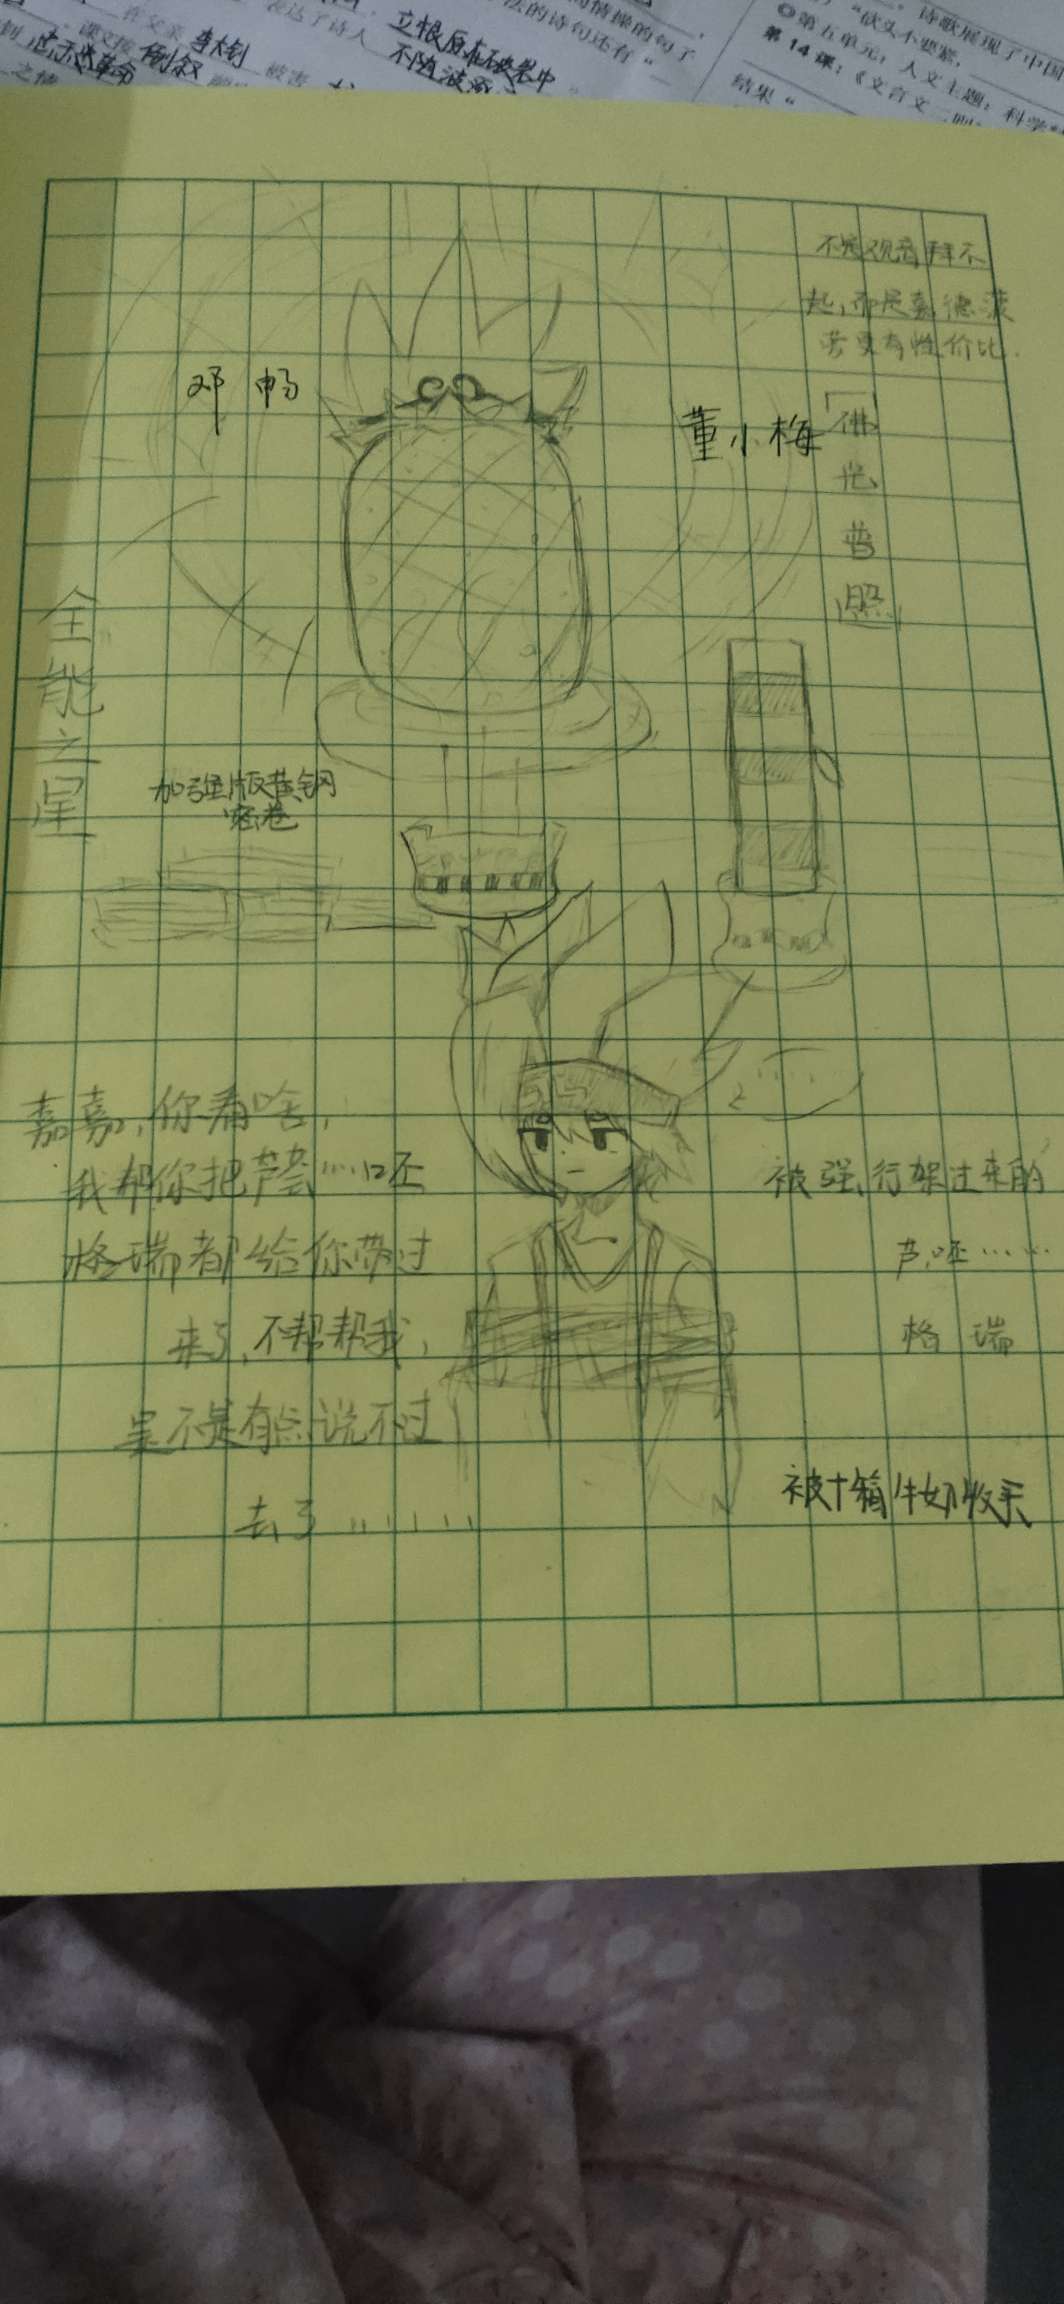 立根原在破岩中
不随波逐
情操的句子
法的诗句还有“
表达了诗人
在父亲李大钊
被害
倒叙
诗歌展现了中国
“砍头不要紧，
◎第五单元：人文主题：科学
第14课：《文言文二则
结果“
不是观音拜不
起，而是嘉德菠
萝更有性价比．
邓畅
董小梅
「佛光普照」
全能之星
加强版黄钢
密卷
嘉嘉，你看啥，
我帮你把芦荟……呸
格瑞都给你带过
来了，不帮帮我，
是不是有点说不过
去了……
被强行架过来的
芦，呸……
格瑞
被十箱牛奶收买